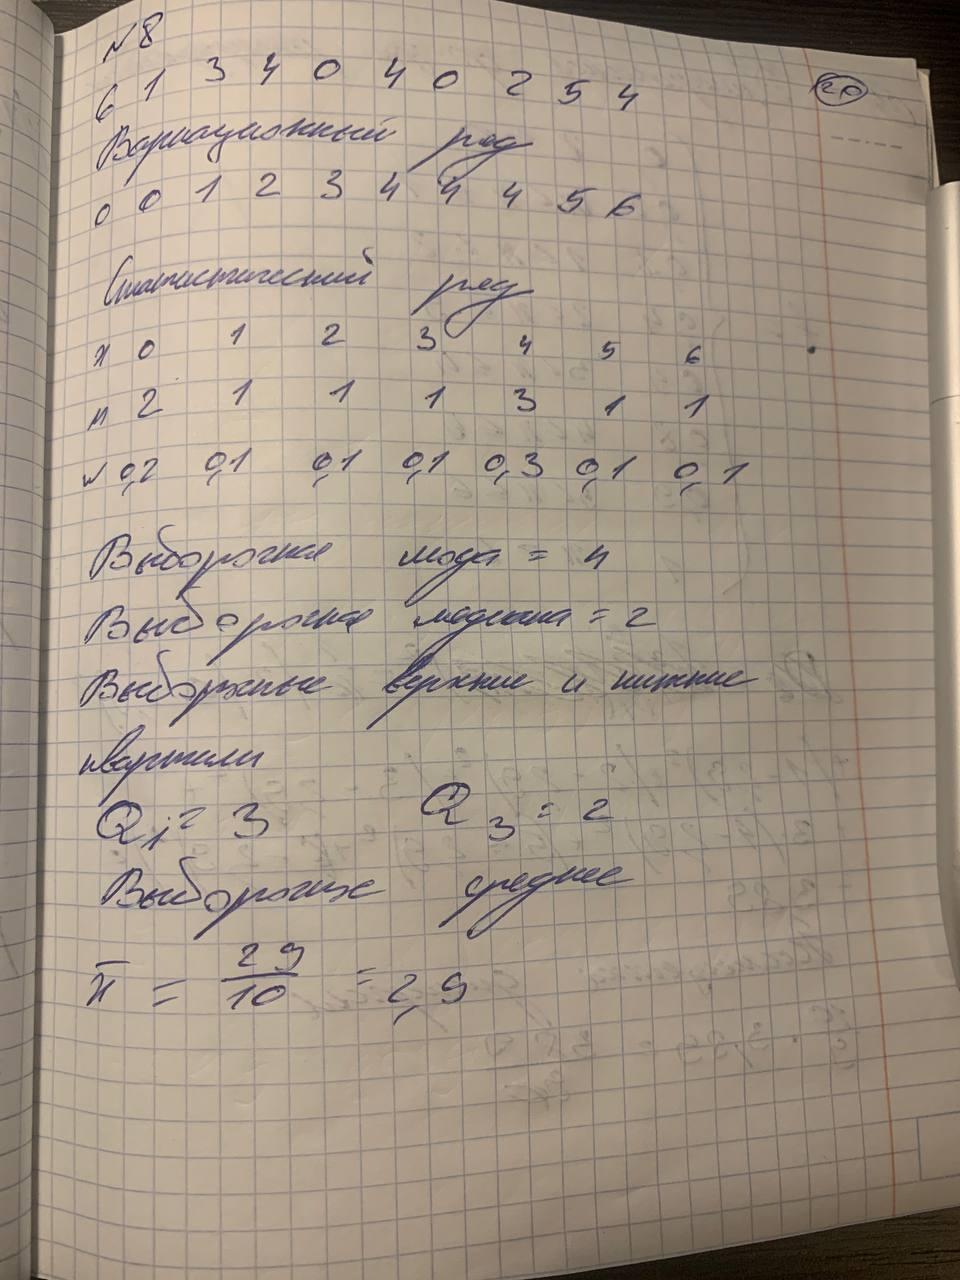 N8
20
6 1 3 4 0 4 0 2 5 4
Вариационный ряд
0 0 1 2 3 4 4 4 5 6
Статистический ряд
x 0 1 2 3 4 5 6
n 2 1 1 1 3 1 1
w 0,2 0,1 0,1 0,1 0,3 0,1 0,1
Выборочная мода = 4
Выборочная медиана = 2
Выборочные верхние и нижние
квартили
Q1 = 3 Q3 = 2
Выборочное среднее
x̄ = 29/10 = 2,9